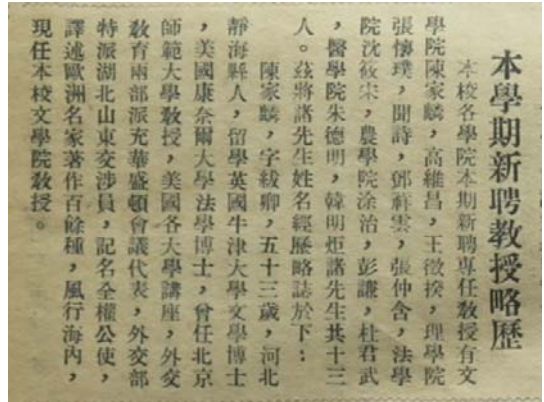 本學期新聘教授略歷
本校各學院本期新聘專任教授有文
學院陳家麟，高維昌，王徵揆，理學院
張懷璞，聞詩，鄧靜雲，張仲含，法學
院沈筱宋，農學院涂治，彭謙，杜君武
，醫學院朱德明，韓明炬諸先生共十三
人。茲將諸先生姓名經歷略誌於下：
陳家麟，字紱卿，五十三歲，河北
靜海縣人，留學英國牛津大學文學博士
，美國康奈爾大學法學博士，曾任北京
師範大學教授，美國各大學講座，外交
教育兩部派充華盛頓會議代表，外交部
特派湖北山東交涉員，記名全權公使，
譯述歐洲名家著作百餘種，風行海內，
現任本校文學院教授。